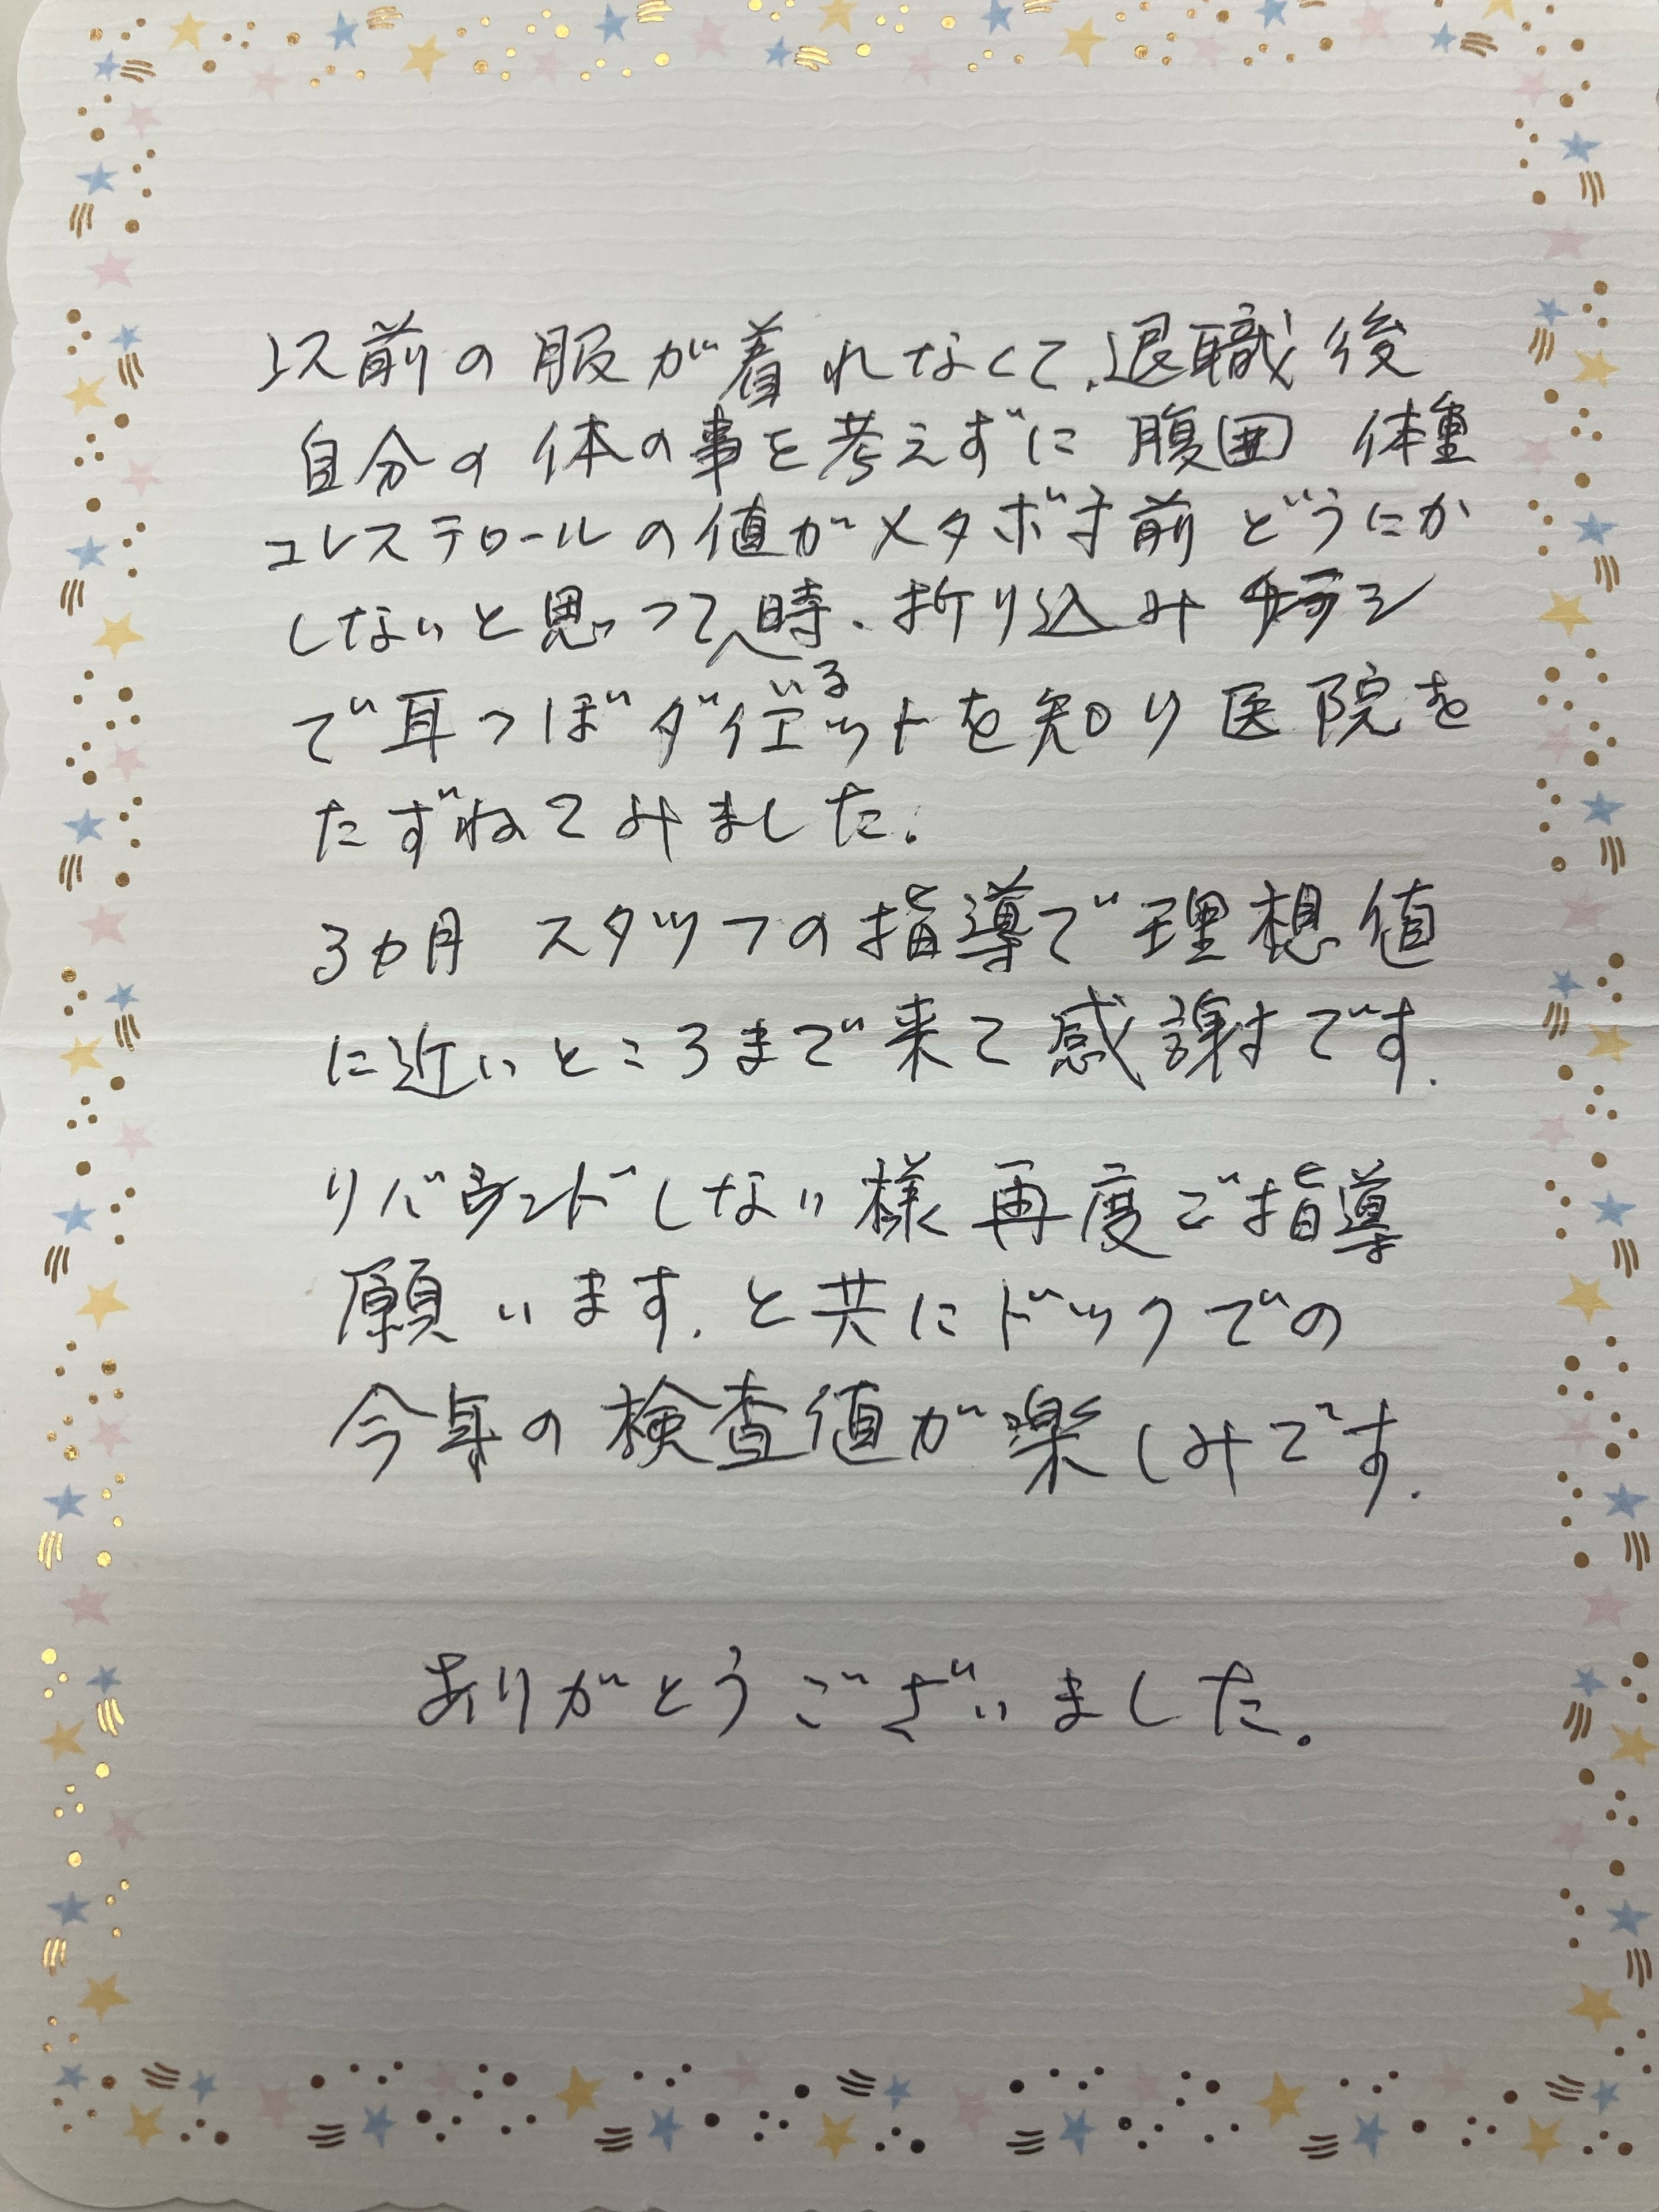 以前の服が着れなくて、退職後
自分の体の事を考えずに 腹囲 体重
コレステロールの値がメタボ寸前 どうにか
しないと思っている時、折り込みチラシ
で耳つぼダイエットを知り医院を
たずねてみました。
3カ月 スタッフの指導で理想値
に近いところまで来て感謝です。
リバウンドしない様再度ご指導
願います。と共にドックでの
今年の検査値が楽しみです。
ありがとうございました。